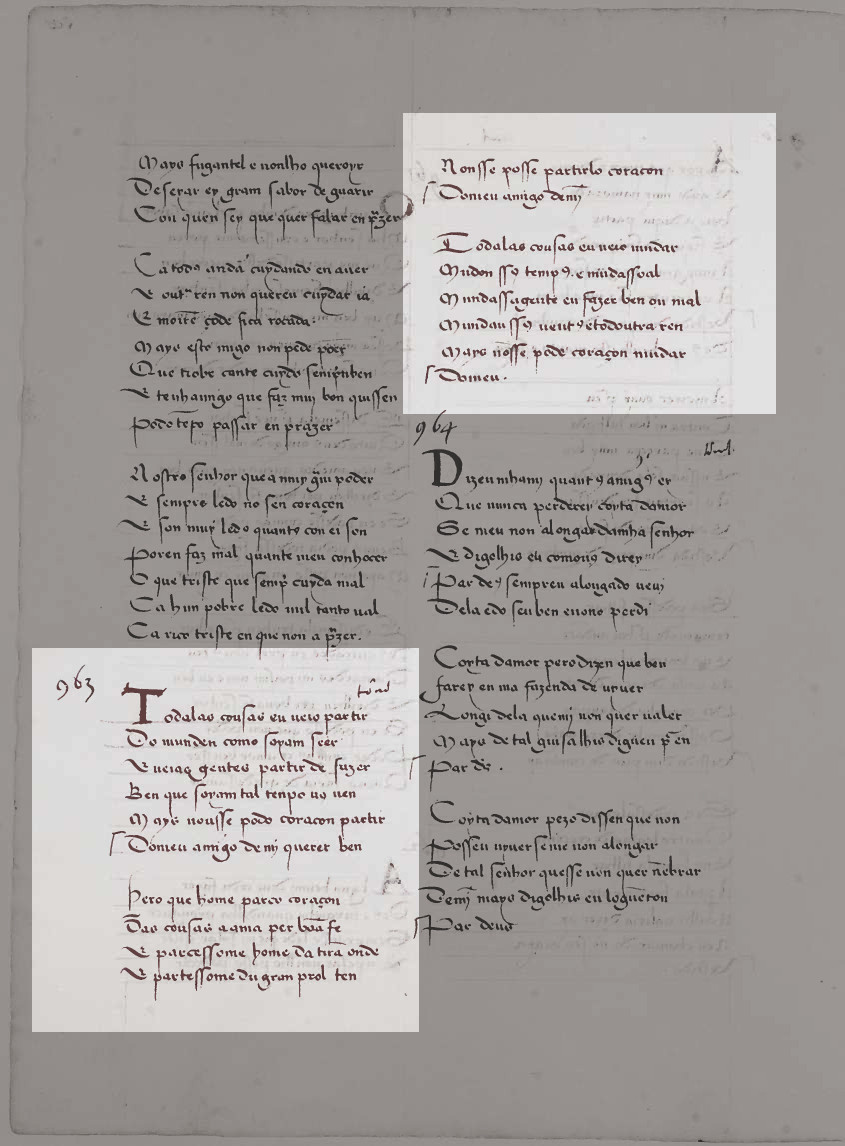 Mays fugantel e nonlho queroyr
Deseiar ey gram sabor de guarir
Con quen sey que quer falar en przer
Ca todo anda cuydando en auer
E out ren non quereu cuydar ia
E morre çode fica rocada
Mays esto migo non pode poer
Que trobe cante cuydo sempben
E tenhamigo que faz mui bon quissen
Podo tepo passar en prazer
Nostro senhor que a nmy gui poder
E sempre ledo no seu coraçen
E son muy ledo quanto con ei son
Poren faz mal quante meu conhocer
O que triste que semp cuyda mal
Ca hun pobre ledo mil tanto ual
Ca rico triste en que non a przer.
963
Todalas cousas eu ueio partir
Do munden como soyam seer
E ueiaq gentes partir de fazer
Ben que soyam tal tenpo uo uen
Mays nousse podo coraçon partir
Domeu amigo de mi querer ben
Pero que home parco coraçon
Das cousas a ama per boa fe
E parcessome home da tira onde
E partessome du gran prol ten
A
Nonsse posse partirlo coraçon
Domeu amigo demi
Todalas cousas eu ueio mudar
Mudon ssꝯ tempꝯ. e mudassoal
Mudassagente en fazer ben ou mal
Mundau ssꝯ uentꝯ etodoutra ren
Mays nosse pode coraçon mudar
Domeu.
964
Dizeu mhamj quantꝯ amigꝯ er
Que nunca perderey coyta damor
Se meu non alongar damha senhor
E digolhis eu comouꝯ direy
Par deꝯ sempreu alongado ueui
Dela edo seu ben enono perdi
Coyta damor pero dizen que ben
farey en ma fazenda de uyuer
Longi dela quemj non quer ualer
Mays de tal guisa lhis digueu p en
Par ds .
Coyta damor pezo dissen que non
Posseu uyuer senie non alongar
De tal senhor quesse non quer nebrar
Demi mays digolhis eu logueton
Par deus